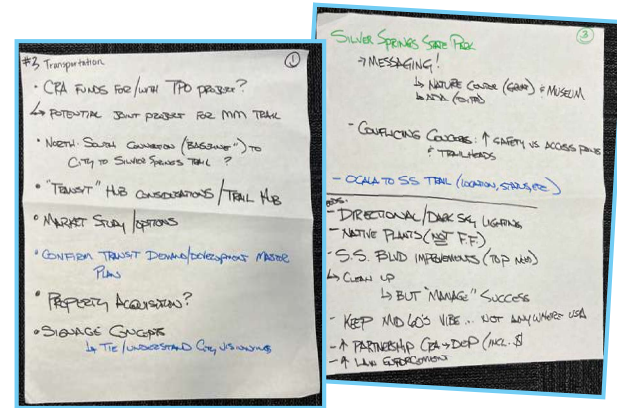 #3 Transportation
1
• CRA FUNDS FOR/WITH TPO PROJECT?
↳ POTENTIAL JOINT PROJECT FOR MM TRAIL
• NORTH-SOUTH CONNECTION ("BASELINE") TO
CITY TO SILVER SPRINGS TRAIL ?
• "TRANSIT" HUB CONSIDERATIONS/TRAIL HUB
• MARKET STUDY/OPTIONS
• CONFIRM TRANSIT DEMAND/DEVELOPMENT MASTER
PLAN
• PROPERTY ACQUISITION?
• SIGNAGE CONCEPTS
↳ TIE/UNDERSTAND CITY VISIONING
3
SILVER SPRINGS STATE PARK
→ MESSAGING!
↳ NATURE CENTER (GREAT) & MUSEUM
↳ ADA
- CONFLICTING CONCERNS: ↑ SAFETY VS ACCESS POINTS
& TRAILHEADS
- OCALA TO SS TRAIL (LOCATION, STATUS, ETC)
- DIRECTIONAL/DARK SKY LIGHTING
- NATIVE PLANTS (NOT F.F.)
- S.S. BLVD IMPROVEMENTS (TOP NEED)
↳ CLEAN UP
↳ BUT "MANAGE" SUCCESS
- KEEP MID 60'S VIBE... NOT ANYWHERE USA
- ↑ PARTNERSHIP CRA → DEP (INCL. $)
- ↑ LAW ENFORCEMENT